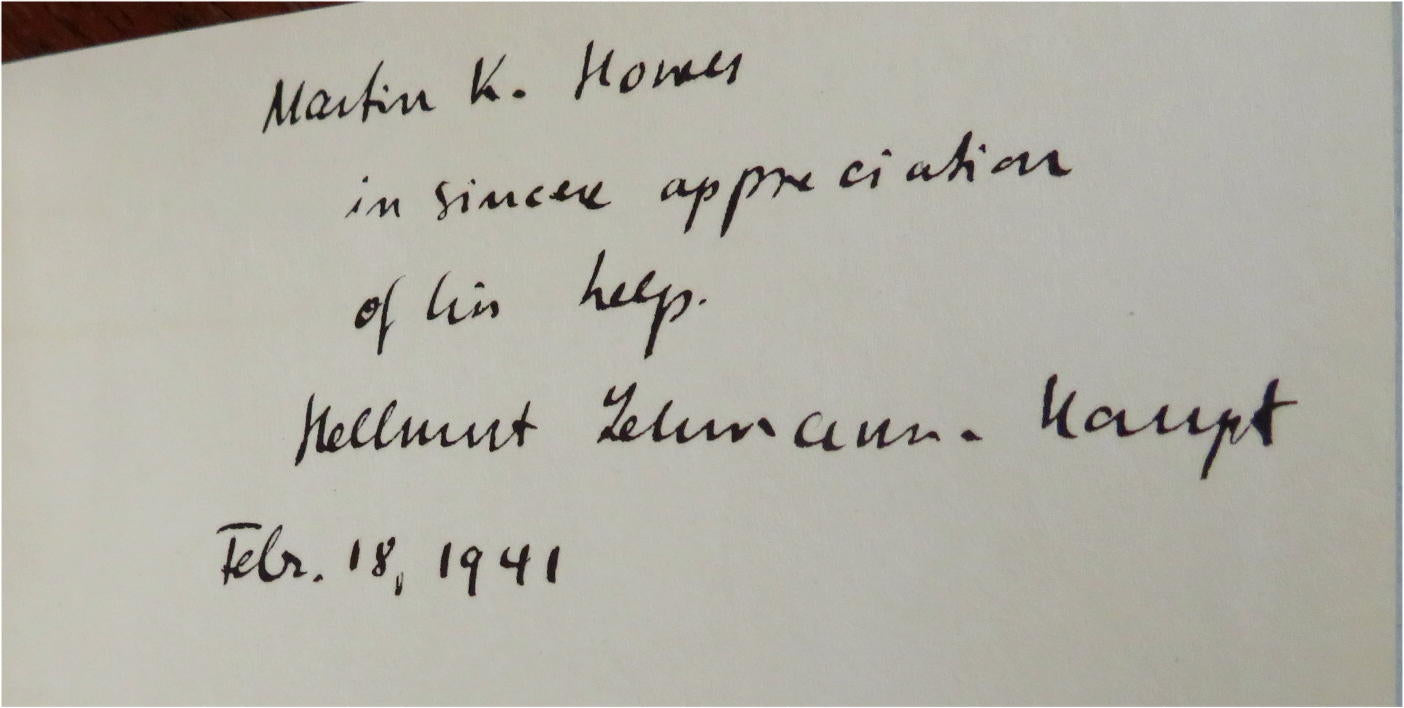 Martin K. Howes
in sincere appreciation
of his help.
Hellmut Lehmann-Haupt
Febr. 18, 1941